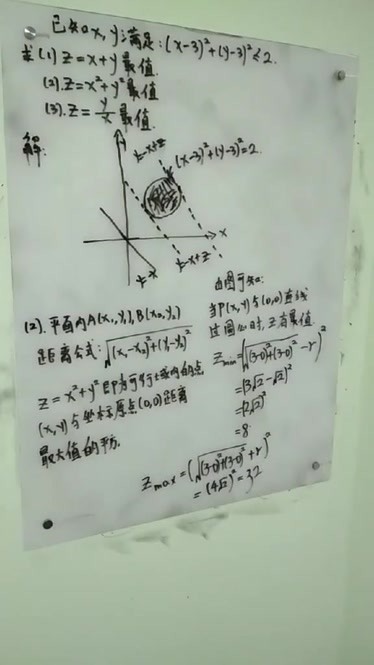 已知x,y满足:(x-3)²+(y-3)²≤2.
求(1)z=x+y最值.
(2).z=x²+y²最值
(3).z=y/x最值.
解:
y=-x+z
(x-3)²+(y-3)²=2.
x
y=-x+z
y=-x
(2).平面内A(x₁,y₁),B(x₂,y₂)
距离公式:√(x₁-x₂)²+(y₁-y₂)²
z=x²+y²即为可行域内的点
(x,y)与坐标原点(0,0)距离
最大值的平方.
由图可知:
当P(x,y)与(0,0)连线
过圆心时,z有最值
Zmin=(√(3-0)²+(3-0)²-r)²
=(3√2-√2)²
=(2√2)²
=8
Zmax=(√(3-0)²+(3-0)²+r)²
=(4√2)²=32